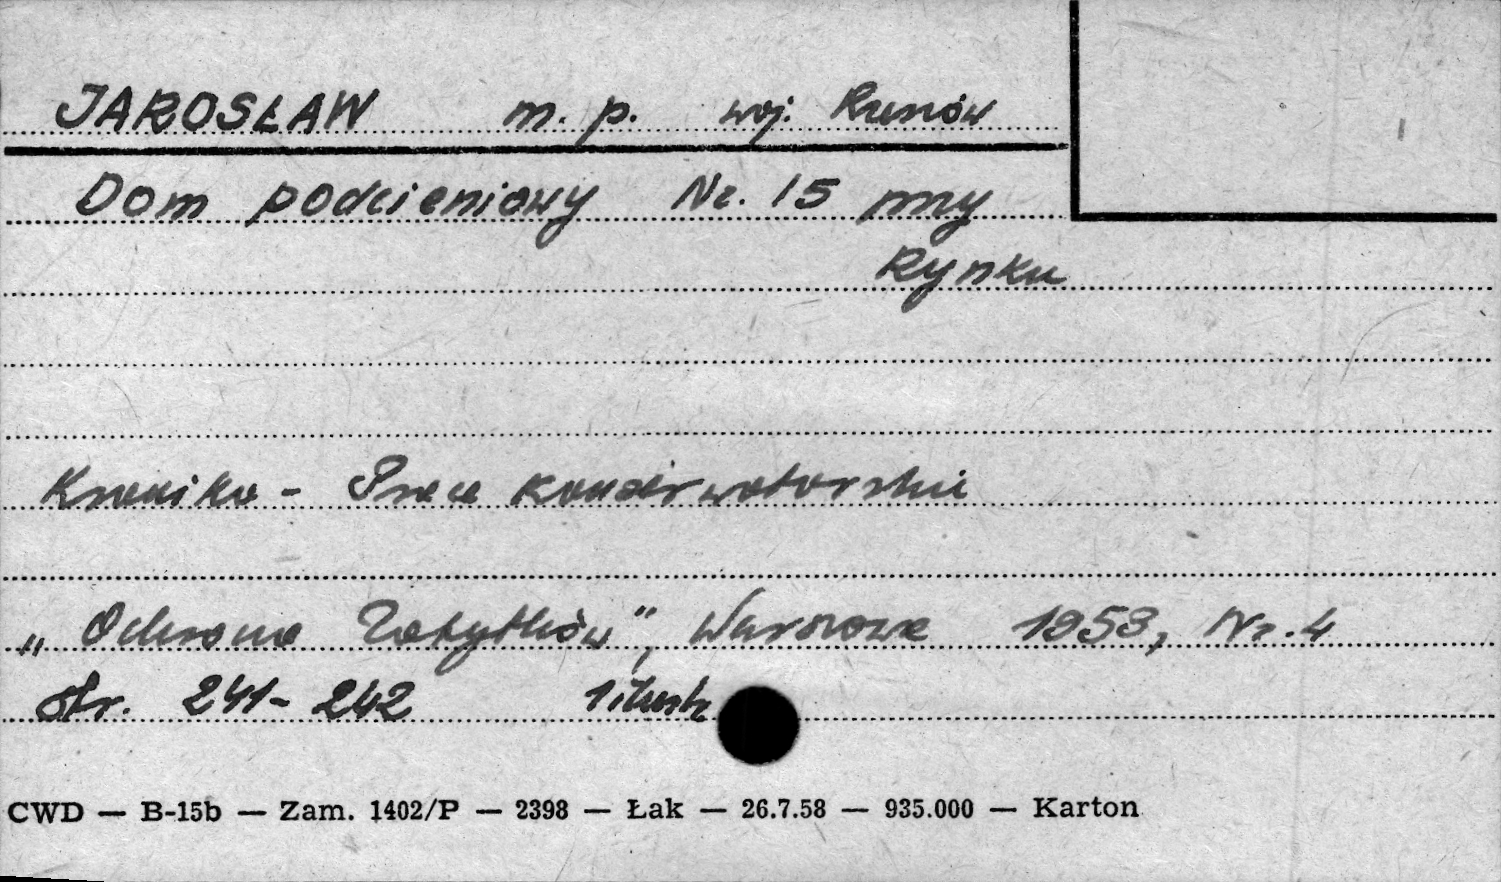 JAROSŁAW m. p. woj. Rzeszów
Dom podcieniowy Nr. 15 przy
Rynku
Kronika - Prace konserwatorskie
„Ochrona Zabytków", Warszawa 1953, Nr. 4
str. 241-242 1 ilustr.
CWD — B-15b — Zam. 1402/P — 2398 — Łak — 26.7.58 — 935.000 — Karton